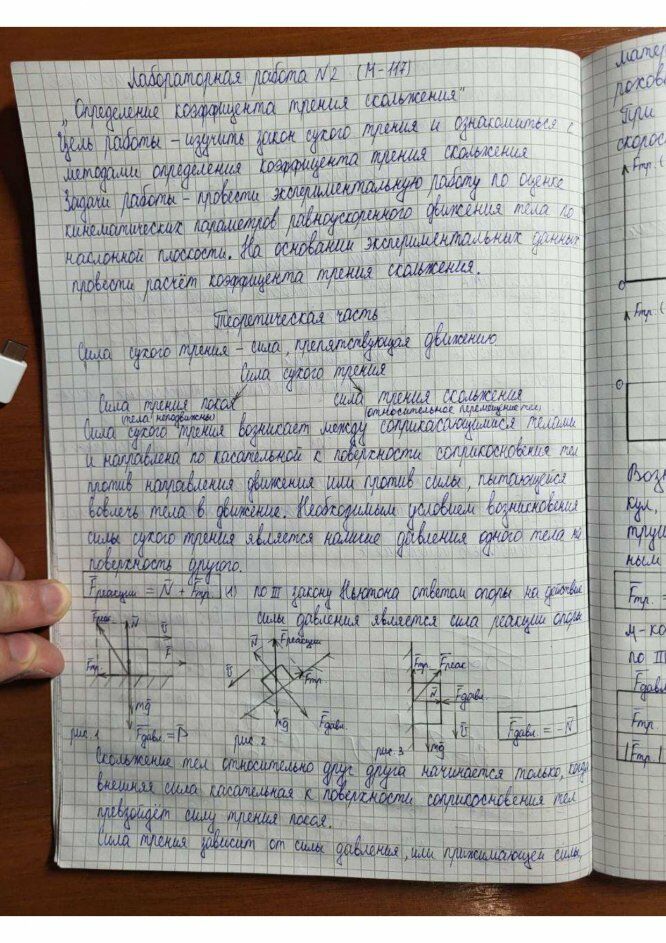 Лабораторная работа №2 (М-117)
„Определение коэффицента трения скольжения"
Цель работы – изучить закон сухого трения и ознакомиться с
методами определения коэффицента трения скольжения
Задачи работы – провести экспериментальную работу по оценке
кинематических параметров равноускоренного движения тела по
наслонной плоскости. На основании экспериментальных данных
провести расчёт коэффицента трения скольжения.
Теоретическая часть
Сила сухого трения – сила, препятствующая движению
Сила сухого трения
Сила трения покоя
сила трения скольжения
(тела неподвижны)
(относительное перемещение тел)
Сила сухого трения возникает между соприкасающимися телами
и направлена по касательной к поверхности соприкосновения тел
против направления движения или против силы, пытающейся
вовлечь тела в движение. Необходимым условием возникновения
силы сухого трения является наличие давления одного тела на
поверхность другого.
F̄реакции = N̄ + F̄тр. (1) по III закону Ньютона ответом опоры на действие
силы давления является сила реакции опоры
F̄реак. N̄ ῡ F̄ F̄тр. mḡ F̄давл.=P̄
рис. 1
N̄ F̄реакции ῡ F̄тр. mḡ F̄давл.
рис. 2
F̄тр. F̄реак N̄ F̄давл. ῡ mḡ
рис. 3
F̄давл. = -N̄
Скольжение тел относительно друг друга начинается только, когда
внешняя сила касательная к поверхности соприкосновения тел
превзойдёт силу трения покоя.
Сила трения зависит от силы давления, или прижимающей силы,
матер
рохов
При
скорос
Fтр. (
0
Fтр. (
0
Возн
кул,
трущ
ным
Fтр. =
μ-ко
по III
F̄давл
Fтр.
|Fтр.|